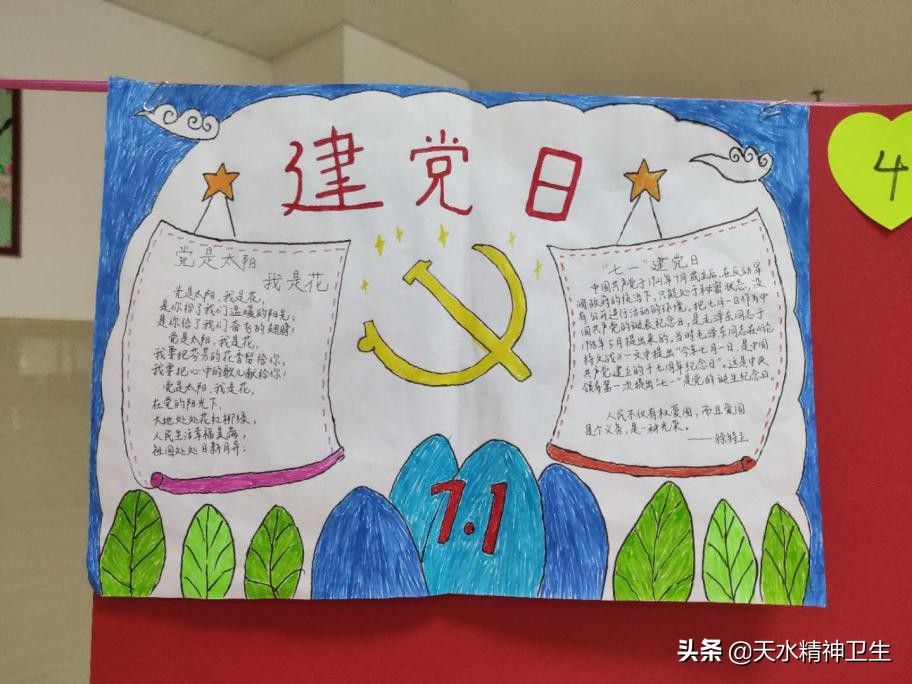 建党日
4
党是太阳
我是花
党是太阳,我是花,
是你给了我们温暖的阳光;
是你给了我们奋飞的翅膀!
党是太阳,我是花,
我要把芬芳的花香留给你,
我要把心中的歌儿献给你!
党是太阳,我是花,
在党的阳光下,
大地处处花红柳绿,
人民生活幸福美满,
祖国处处日新月异;
"七一"建党日
中国共产党于1921年7月成立后,在反动军
阀政府的统治下,只能处于秘密状态,没
有公开进行活动的环境。把七月一日作为中
国共产党的诞辰纪念日,是毛泽东同志于
1938年5月提出来的。当时毛泽东同志在《论
持久战》一文中提出"今年七月一日,是中国
共产党建立的十七周年纪念日"。这是中央
领导第一次提出"七一"是党的诞生纪念日。
人民不仅有权爱国,而且爱国
是个义务,是一种光荣。
——徐特立
7.1
头条 @天水精神卫生